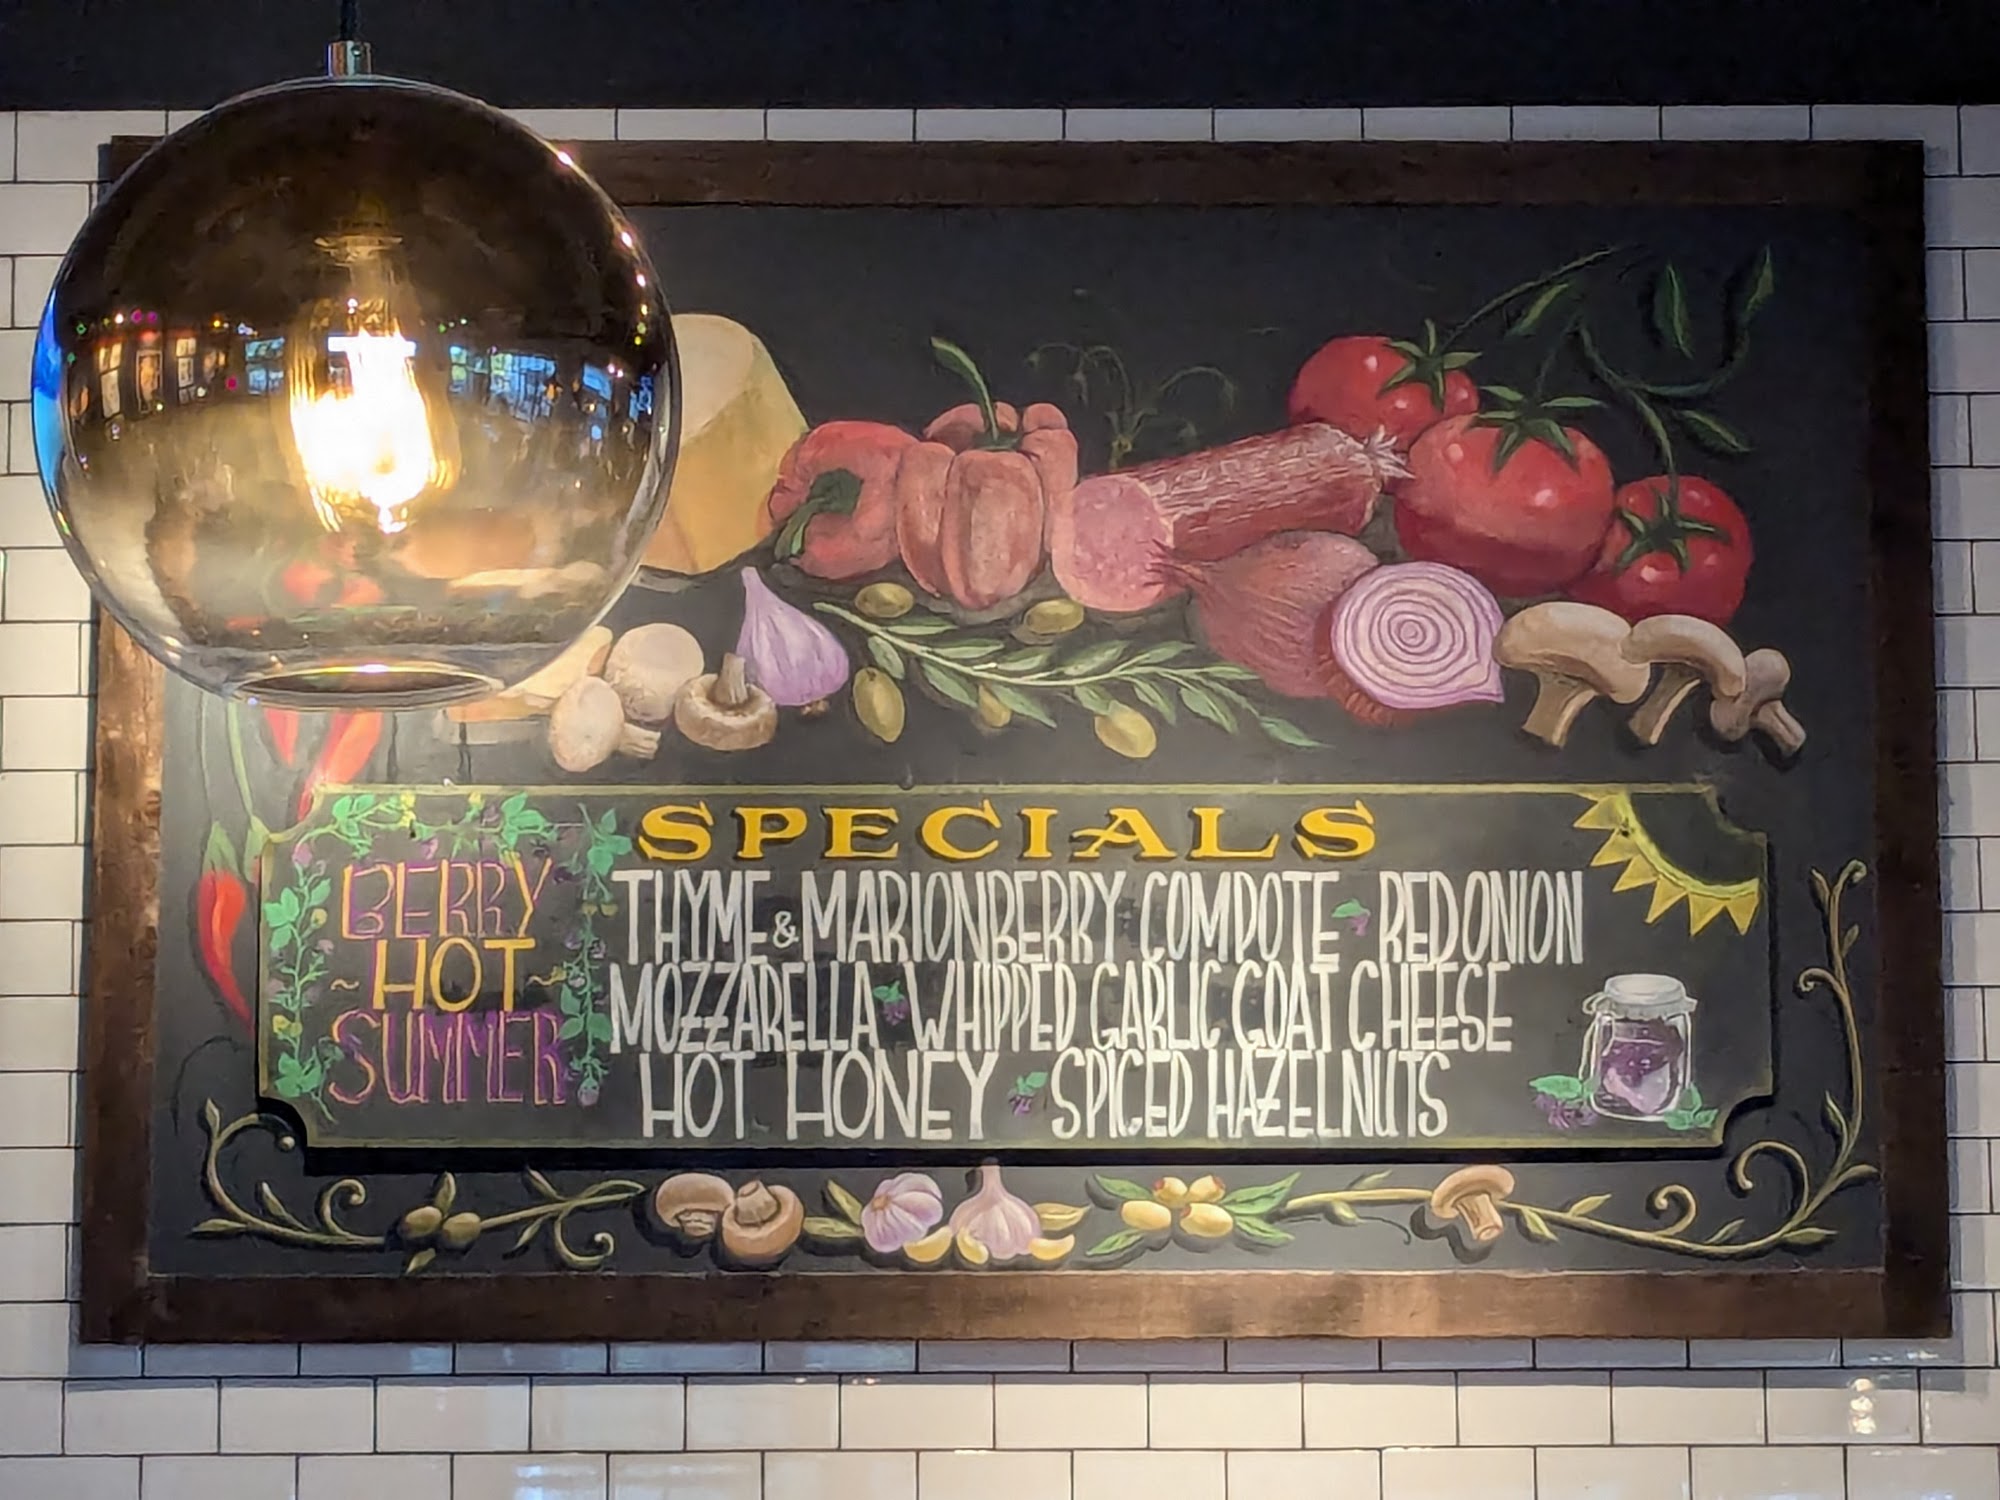 SPECIALS
BERRY
~HOT~
SUMMER
THYME & MARIONBERRY COMPOTE RED ONION
MOZZARELLA WHIPPED GARLIC GOAT CHEESE
HOT HONEY SPICED HAZELNUTS